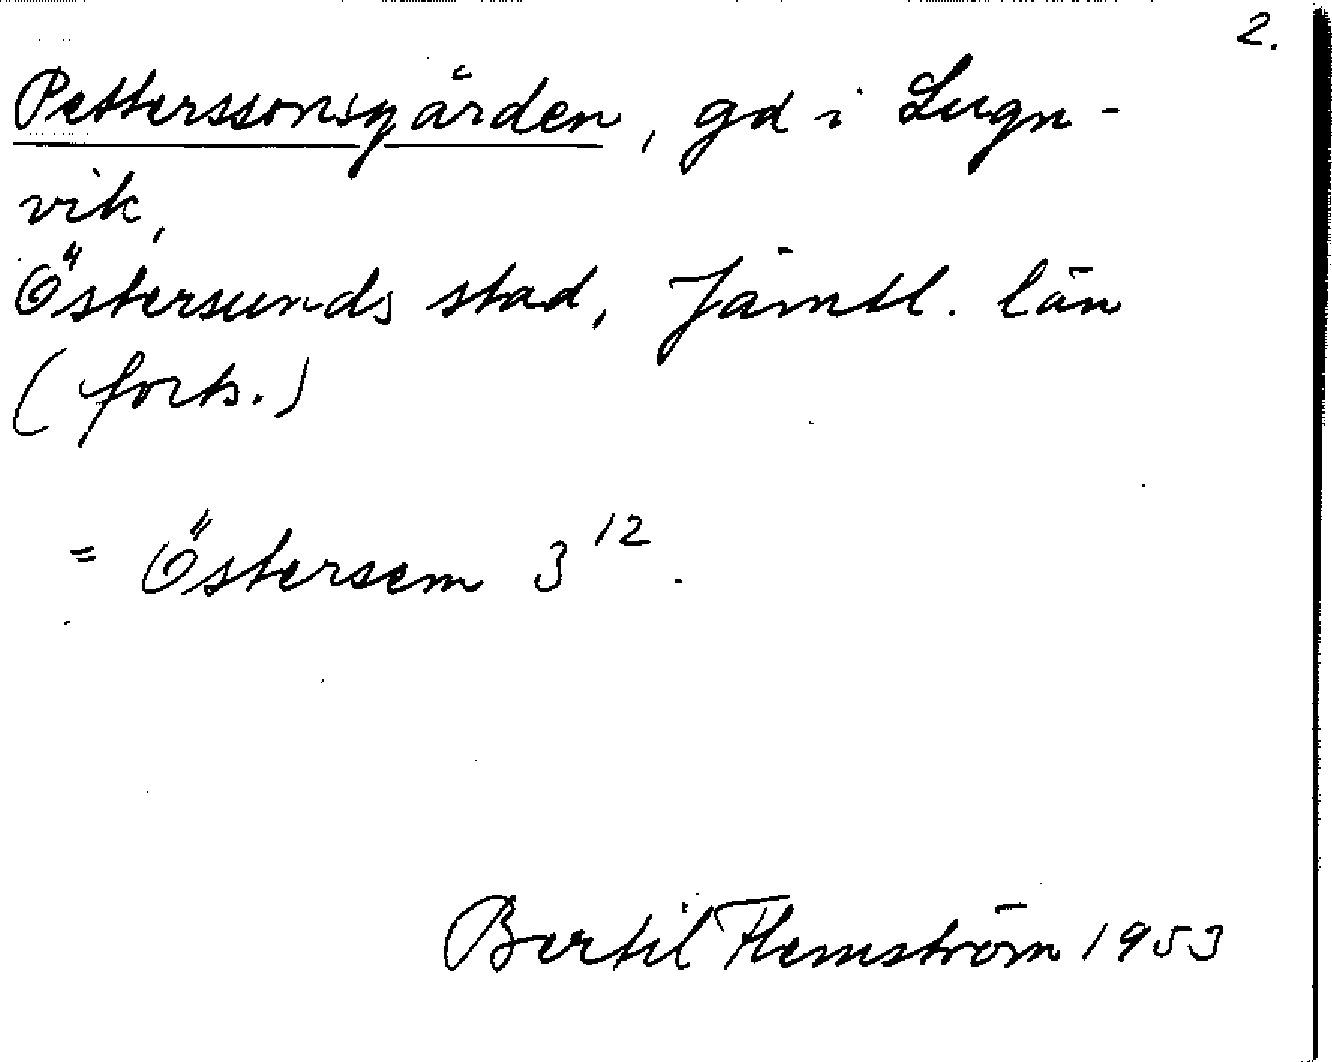 2.
Petterssonsgården, gd i Lugn-
vik,
Östersunds stad, Jämtl. län
(forts.)
= Östersem 3¹².
Bertil Flemström 1953